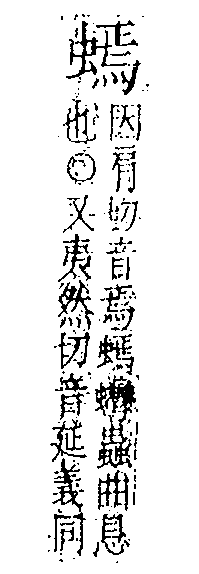 蔫
因肩切音焉蔫蟲曲息
也〇又夷然切音延義同